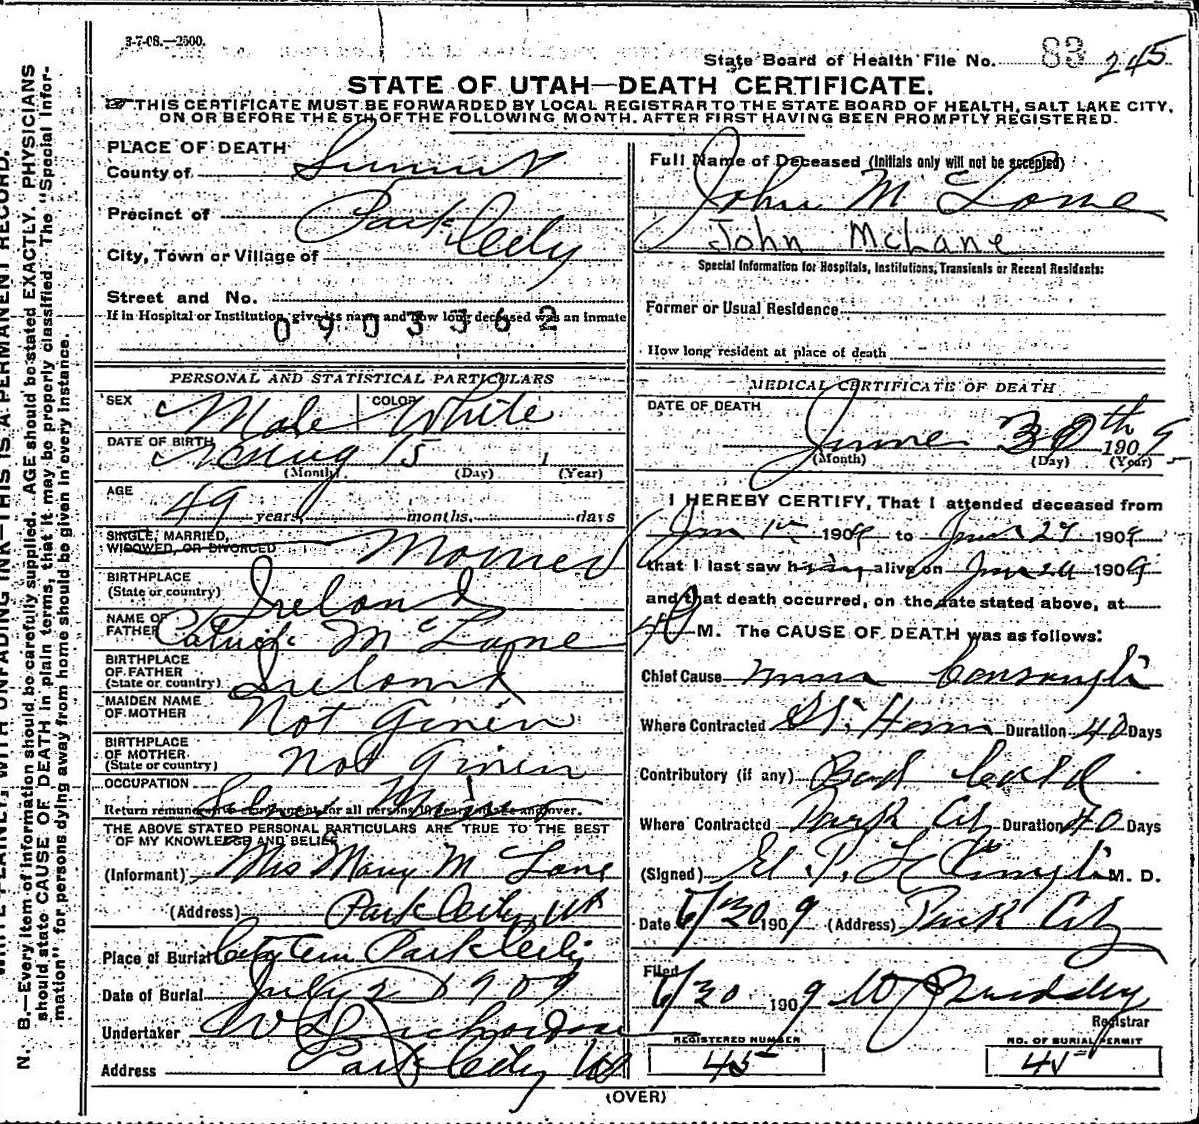 3-7-08.—2500.
State Board of Health File No. 83 245
STATE OF UTAH—DEATH CERTIFICATE.
THIS CERTIFICATE MUST BE FORWARDED BY LOCAL REGISTRAR TO THE STATE BOARD OF HEALTH, SALT LAKE CITY,
ON OR BEFORE THE 5TH OF THE FOLLOWING MONTH. AFTER FIRST HAVING BEEN PROMPTLY REGISTERED.
PLACE OF DEATH
County of Summit
Precinct of Park City
City, Town or Village of
Street and No.
If in Hospital or Institution, give its name and how long deceased was an inmate
0903362
PERSONAL AND STATISTICAL PARTICULARS
SEX Male COLOR White
DATE OF BIRTH Aug 15 1
(Month) (Day) (Year)
AGE 49 years months. days
SINGLE, MARRIED,
WIDOWED, OR DIVORCED Married
BIRTHPLACE
(State or country) Ireland
NAME OF
FATHER Patrick McLane
BIRTHPLACE
OF FATHER
(State or country) Ireland
MAIDEN NAME
OF MOTHER Not Given
BIRTHPLACE
OF MOTHER
(State or country) Not Given
OCCUPATION
Return remunerative employment for all persons 10 years of age and over.
THE ABOVE STATED PERSONAL PARTICULARS ARE TRUE TO THE BEST
OF MY KNOWLEDGE AND BELIEF
(Informant) Mrs Mary McLane
(Address) Park City Ut
Place of Burial Park City
Date of Burial July 2 1909
Undertaker Richardson
Address Park City Ut
Full Name of Deceased (Initials only will not be accepted)
John McLane
John McLane
Special Information for Hospitals, Institutions, Transients or Recent Residents:
Former or Usual Residence
How long resident at place of death
MEDICAL CERTIFICATE OF DEATH
DATE OF DEATH
June 30th 1909
(Month) (Day) (Year)
I HEREBY CERTIFY, That I attended deceased from
1909 to June 29 1909
that I last saw h alive on June 1909
and that death occurred, on the date stated above, at
M. The CAUSE OF DEATH was as follows:
Chief Cause Consumpti
Where Contracted Duration 40 Days
Contributory (if any) Bad Cold
Where Contracted Park City Duration 40 Days
(Signed) M. D.
Date 6/30 1909 (Address) Park City
Filed
6/30 1909
Registrar
REGISTERED NUMBER
45
NO. OF BURIAL PERMIT
45
(OVER)
N. B.—Every item of information should be carefully supplied. AGE should be stated EXACTLY. PHYSICIANS
should state CAUSE OF DEATH in plain terms, that it may be properly classified. The "Special Infor-
mation" for persons dying away from home should be given in every instance.
WRITE PLAINLY, WITH UNFADING INK—THIS IS A PERMANENT RECORD.